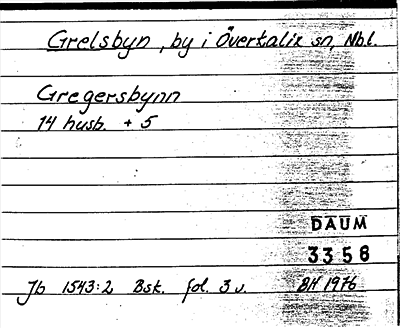 Grelsbyn, by i Överkalix sn, Nbl.
Gregersbynn
14 husb. + 5
DAUM
3358
Jb 1543:2 Bsk. fol. 3 v. BH 1976